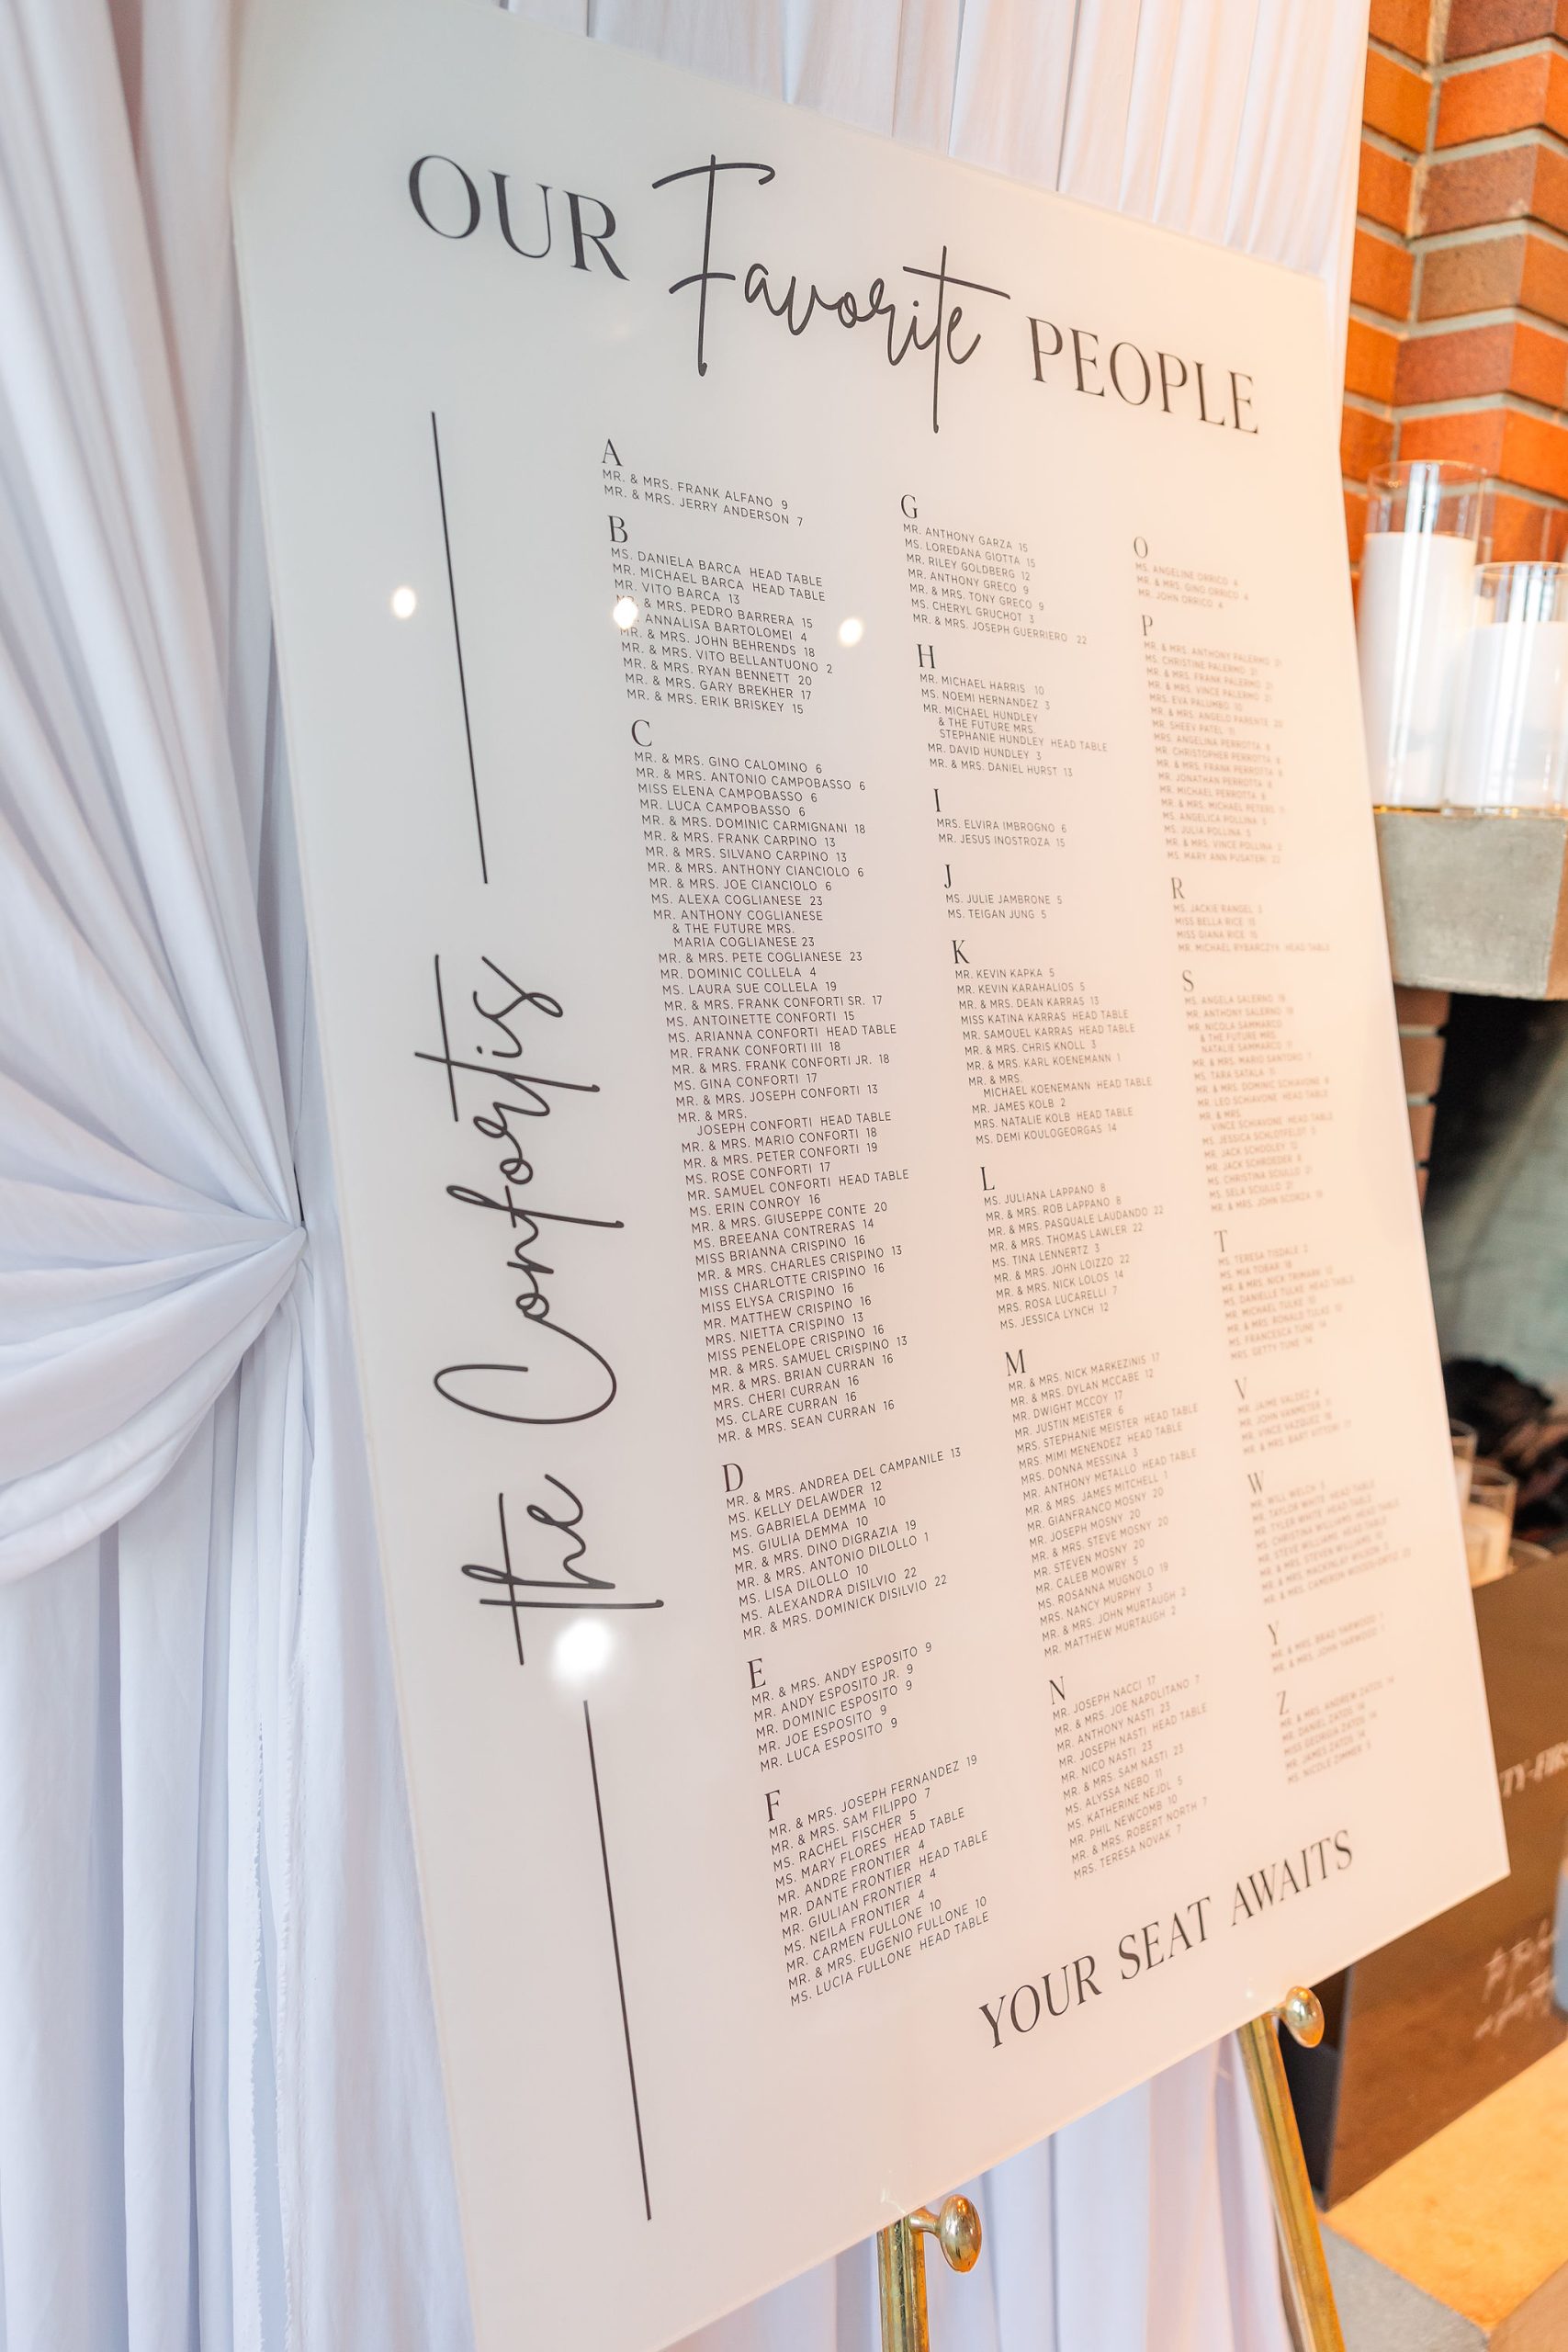 OUR Favorite PEOPLE
the Confortis
A
MR. & MRS. FRANK ALFANO 9
MR. & MRS. JERRY ANDERSON 7
B
MS. DANIELA BARCA HEAD TABLE
MR. MICHAEL BARCA HEAD TABLE
MR. VITO BARCA 13
& MRS. PEDRO BARRERA 15
ANNALISA BARTOLOMEI 4
MR. & MRS. JOHN BEHRENDS 18
MR. & MRS. VITO BELLANTUONO 2
MR. & MRS. RYAN BENNETT 20
MR. & MRS. GARY BREKHER 17
MR. & MRS. ERIK BRISKEY 15
C
MR. & MRS. GINO CALOMINO 6
MR. & MRS. ANTONIO CAMPOBASSO 6
MISS ELENA CAMPOBASSO 6
MR. LUCA CAMPOBASSO 6
MR. & MRS. DOMINIC CARMIGNANI 18
MR. & MRS. FRANK CARPINO 13
MR. & MRS. SILVANO CARPINO 13
MR. & MRS. ANTHONY CIANCIOLO 6
MR. & MRS. JOE CIANCIOLO 6
MS. ALEXA COGLIANESE 23
MR. ANTHONY COGLIANESE
& THE FUTURE MRS.
MARIA COGLIANESE 23
MR. & MRS. PETE COGLIANESE 23
MR. DOMINIC COLLELA 4
MS. LAURA SUE COLLELA 19
MR. & MRS. FRANK CONFORTI SR. 17
MS. ANTOINETTE CONFORTI 15
MS. ARIANNA CONFORTI HEAD TABLE
MR. FRANK CONFORTI III 18
MR. & MRS. FRANK CONFORTI JR. 18
MS. GINA CONFORTI 17
MR. & MRS. JOSEPH CONFORTI 13
MR. & MRS.
JOSEPH CONFORTI HEAD TABLE
MR. & MRS. MARIO CONFORTI 18
MR. & MRS. PETER CONFORTI 19
MS. ROSE CONFORTI 17
MR. SAMUEL CONFORTI HEAD TABLE
MS. ERIN CONROY 16
MR. & MRS. GIUSEPPE CONTE 20
MS. BREEANA CONTRERAS 14
MISS BRIANNA CRISPINO 16
MR. & MRS. CHARLES CRISPINO 13
MISS CHARLOTTE CRISPINO 16
MISS ELYSA CRISPINO 16
MR. MATTHEW CRISPINO 16
MRS. NIETTA CRISPINO 13
MISS PENELOPE CRISPINO 16
MR. & MRS. SAMUEL CRISPINO 13
MR. & MRS. BRIAN CURRAN 16
MRS. CHERI CURRAN 16
MS. CLARE CURRAN 16
MR. & MRS. SEAN CURRAN 16
D
MR. & MRS. ANDREA DEL CAMPANILE 13
MS. KELLY DELAWDER 12
MS. GABRIELA DEMMA 10
MS. GIULIA DEMMA 10
MR. & MRS. DINO DIGRAZIA 19
MR. & MRS. ANTONIO DILOLLO 1
MS. LISA DILOLLO 10
MS. ALEXANDRA DISILVIO 22
MR. & MRS. DOMINICK DISILVIO 22
E
MR. & MRS. ANDY ESPOSITO 9
MR. ANDY ESPOSITO JR. 9
MR. DOMINIC ESPOSITO 9
MR. JOE ESPOSITO 9
MR. LUCA ESPOSITO 9
F
MR. & MRS. JOSEPH FERNANDEZ 19
MR. & MRS. SAM FILIPPO 7
MS. RACHEL FISCHER 5
MS. MARY FLORES HEAD TABLE
MR. ANDRE FRONTIER 4
MR. DANTE FRONTIER HEAD TABLE
MR. GIULIAN FRONTIER 4
MS. NEILA FRONTIER 4
MR. CARMEN FULLONE 10
MR. & MRS. EUGENIO FULLONE 10
MS. LUCIA FULLONE HEAD TABLE
G
MR. ANTHONY GARZA 15
MS. LOREDANA GIOTTA 15
MR. RILEY GOLDBERG 12
MR. ANTHONY GRECO 9
MR. & MRS. TONY GRECO 9
MS. CHERYL GRUCHOT 3
MR. & MRS. JOSEPH GUERRIERO 22
H
MR. MICHAEL HARRIS 10
MS. NOEMI HERNANDEZ 3
MR. MICHAEL HUNDLEY
& THE FUTURE MRS
STEPHANIE HUNDLEY HEAD TABLE
MR. DAVID HUNDLEY 3
MR. & MRS. DANIEL HURST 13
I
MRS. ELVIRA IMBROGNO 6
MR. JESUS INOSTROZA 15
J
MS. JULIE JAMBRONE 5
MS. TEIGAN JUNG 5
K
MR. KEVIN KAPKA 5
MR. KEVIN KARAHALIOS 5
MR. & MRS. DEAN KARRAS 13
MISS KATINA KARRAS HEAD TABLE
MR. SAMOUEL KARRAS HEAD TABLE
MR. & MRS. CHRIS KNOLL 3
MR. & MRS. KARL KOENEMANN 1
MR. & MRS.
MICHAEL KOENEMANN HEAD TABLE
MR. JAMES KOLB 2
MRS. NATALIE KOLB HEAD TABLE
MS. DEMI KOULOGEORGAS 14
L
MS. JULIANA LAPPANO 8
MR. & MRS. ROB LAPPANO 8
MR. & MRS. PASQUALE LAUDANDO 22
MR. & MRS. THOMAS LAWLER 22
MS. TINA LENNERTZ 3
MR. & MRS. JOHN LOIZZO 22
MR. & MRS. NICK LOLOS 14
MRS. ROSA LUCARELLI 7
MS. JESSICA LYNCH 12
M
MR. & MRS. NICK MARKEZINIS 17
MR. & MRS. DYLAN MCCABE 12
MR. DWIGHT MCCOY 17
MR. JUSTIN MEISTER 6
MRS. STEPHANIE MEISTER HEAD TABLE
MRS. MIMI MENENDEZ HEAD TABLE
MRS. DONNA MESSINA 3
MR. ANTHONY METALLO HEAD TABLE
MR. & MRS. JAMES MITCHELL 1
MR. GIANFRANCO MOSNY 20
MR. JOSEPH MOSNY 20
MR. & MRS. STEVE MOSNY 20
MR. STEVEN MOSNY 20
MR. CALEB MOWRY 5
MS. ROSANNA MUGNOLO 19
MRS. NANCY MURPHY 3
MR. & MRS. JOHN MURTAUGH 2
MR. MATTHEW MURTAUGH 2
N
MR. JOSEPH NACCI 17
MR. & MRS. JOE NAPOLITANO 7
MR. ANTHONY NASTI 23
MR. JOSEPH NASTI HEAD TABLE
MR. NICO NASTI 23
MR. & MRS. SAM NASTI 23
MS. ALYSSA NEBO 11
MS. KATHERINE NEJDL 5
MR. PHIL NEWCOMB 10
MR. & MRS. ROBERT NORTH 7
MRS. TERESA NOVAK 7
O
MS. ANGELINE ORRICO 4
MR. & MRS. GINO ORRICO 4
MR. JOHN ORRICO 4
P
MR. & MRS. ANTHONY PALERMO
MS. CHRISTINE PALERMO
MR. & MRS. FRANK PALERMO
MR. & MRS. VINCE PALERMO
MRS. EVA PALUMBO
MR. & MRS. ANGELO PARENTE
MR. SHEEV PATEL
MRS. ANGELINA PERROTTA
MR. CHRISTOPHER PERROTTA
MR. & MRS. FRANK PERROTTA
MR. JONATHAN PERROTTA
MR. MICHAEL PERROTTA
MR. & MRS. MICHAEL PETERS
MS. ANGELICA POLLINA
MS. JULIA POLLINA
MR. & MRS. VINCE POLLINA
MS. MARY ANN PUSATERI
R
MS. JACKIE RANGEL
MISS BELLA RICE
MISS GIANA RICE
MR. MICHAEL RYBARCZYK HEAD TABLE
S
MS. ANGELA SALERNO
MR. ANTHONY SALERNO
MR. NICOLA SAMMARCO
& THE FUTURE MRS.
NATALIE SAMMARCO
MR. & MRS. MARIO SANTORO
MS. TARA SATALA
MR. & MRS. DOMINIC SCHIAVONE
MR. LEO SCHIAVONE HEAD TABLE
MR. & MRS.
VINCE SCHIAVONE HEAD TABLE
MS. JESSICA
MR. JACK SCHOOLEY
MR. JACK SCHROEDER
MS. CHRISTINA SCIULLO
MS. SELA SCIULLO
MR. & MRS. JOHN
T
MS. TERESA TISDALE
MS. MIA TOBAR
MR. & MRS. NICK
MS. DANIELLE TULKE HEAD TABLE
MR. MICHAEL TULKE
MR. & MRS. RONALD TULKE
MS. FRANCESCA TUNE
MRS. GETTY TUNE
V
MR. JAIME VALDEZ
MR. JOHN
MR. VINCE VAZQUEZ
MR. & MRS. BART
W
MR. WILL WELCH
MR. TAYLOR WHITE HEAD TABLE
MR. TYLER WHITE HEAD TABLE
MS. CHRISTINA WILLIAMS HEAD TABLE
MR. STEVE WILLIAMS HEAD TABLE
MR. & MRS. STEVEN WILLIAMS
MR. & MRS. WILSON
MR. & MRS. CAMERON
Y
MR. & MRS. BRAD YARWOOD
MR. & MRS. JOHN YARWOOD
Z
MR. & MRS. ANDREW ZATOS 14
MR. DANIEL ZATOS 14
MISS GEORGIA ZATOS 14
MR. JAMES ZATOS 14
MS. NICOLE ZIMMER
YOUR SEAT AWAITS